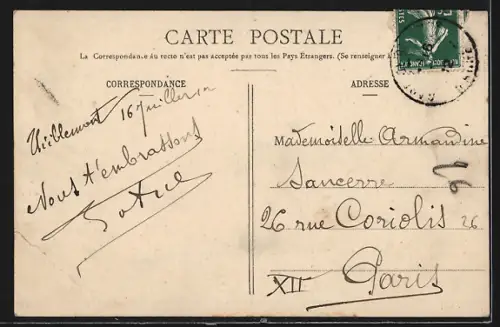 CARTE POSTALE
La Correspondance Au recto n'est pas acceptée par tous les Pays Etrangers. (Se renseigner
CORRESPONDANCE
ADRESSE
16 Juillet
Nous t'embrassons
Mademoiselle Armandine
Sancerre
26 rue Coriolis 26
Paris
XII
26